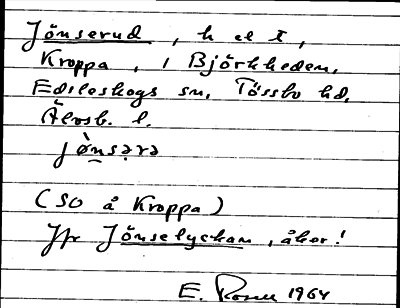 Jönserud, h et t,
Kroppa, i Björkheden,
Edsleskogs sn, Tössbo hd,
Älvsb. l.
jø̀nsərə
(SO å Kroppa)
Jfr Jönselyckan, åker!
E. 1964